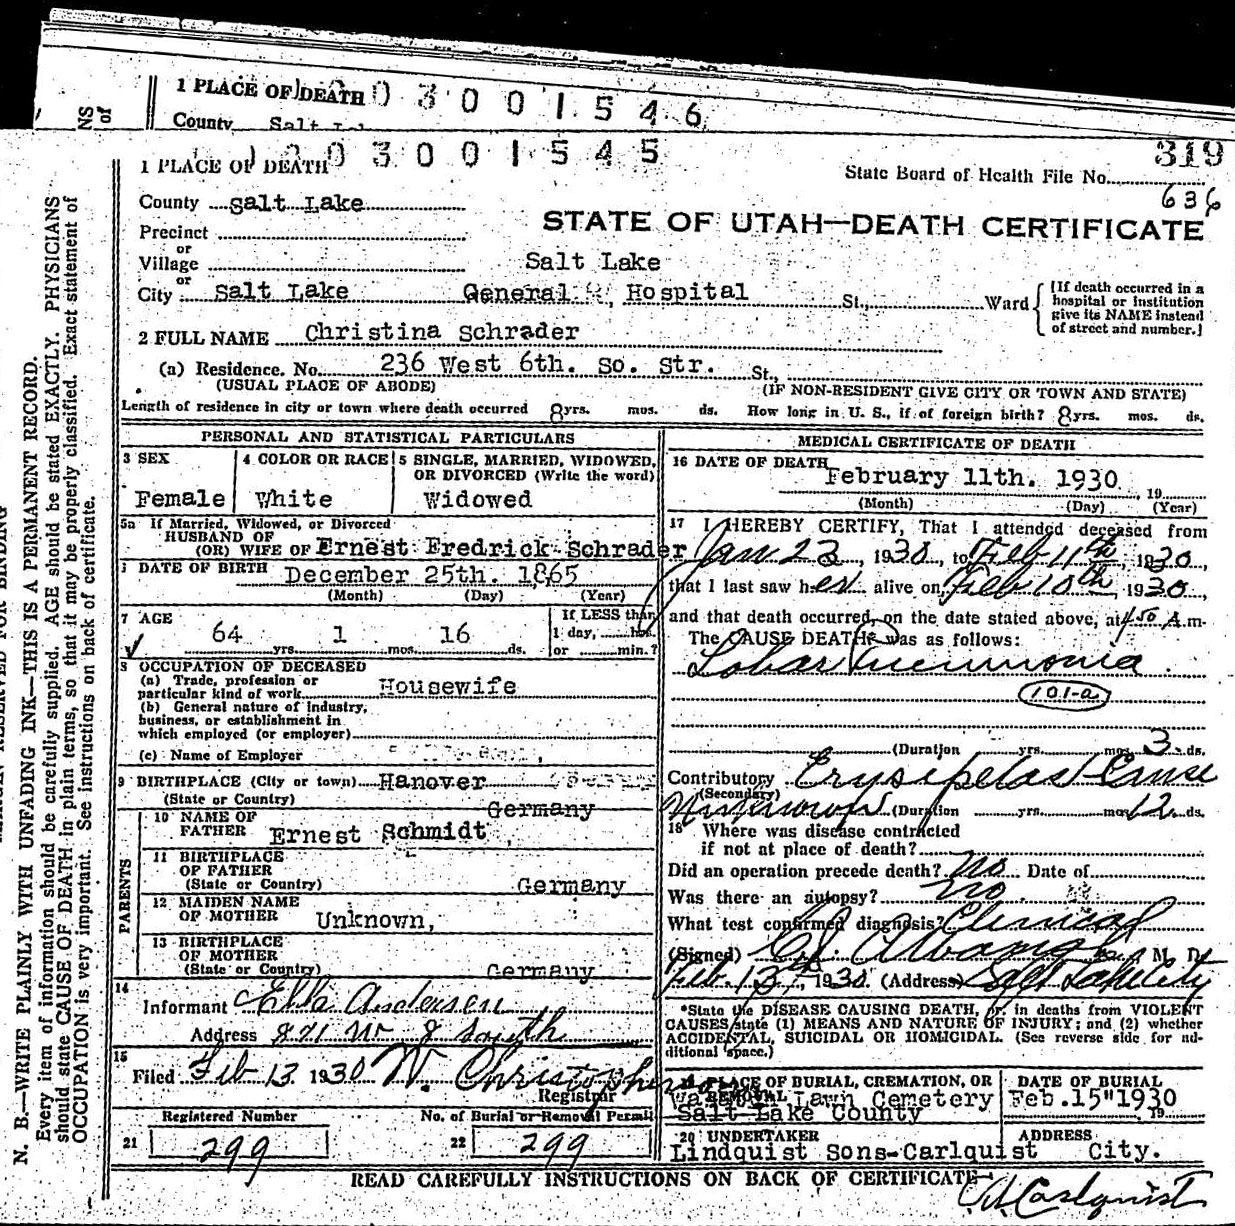 1 PLACE OF DEATH 3001546
County Salt
NS of
1 PLACE OF DEATH 3001545
319
State Board of Health File No.
636
County Salt Lake
STATE OF UTAH—DEATH CERTIFICATE
Precinct
or
Village
Salt Lake
or
City Salt Lake General Hospital St., Ward
[If death occurred in a
hospital or institution
give its NAME instead
of street and number.]
2 FULL NAME Christina Schrader
(a) Residence. No. 236 West 6th. So. Str. St.,
(USUAL PLACE OF ABODE) (IF NON-RESIDENT GIVE CITY OR TOWN AND STATE)
Length of residence in city or town where death occurred 8 yrs. mos. ds. How long in U. S., if of foreign birth? 8 yrs. mos. ds.
PERSONAL AND STATISTICAL PARTICULARS
3 SEX
Female
4 COLOR OR RACE
White
5 SINGLE, MARRIED, WIDOWED,
OR DIVORCED (Write the word)
Widowed
5a If Married, Widowed, or Divorced
HUSBAND OF
(OR) WIFE OF Ernest Fredrick Schrader
DATE OF BIRTH December 25th. 1865
(Month) (Day) (Year)
7 AGE
64 yrs. 1 mos. 16 ds.
If LESS than
1 day, hrs.
or min.?
8 OCCUPATION OF DECEASED
(a) Trade, profession or
particular kind of work Housewife
(b) General nature of industry,
business, or establishment in
which employed (or employer)
(c) Name of Employer
9 BIRTHPLACE (City or town) Hanover
(State or Country) Germany
PARENTS
10 NAME OF
FATHER Ernest Schmidt
11 BIRTHPLACE
OF FATHER
(State or Country) Germany
12 MAIDEN NAME
OF MOTHER Unknown,
13 BIRTHPLACE
OF MOTHER
(State or Country) Germany
14
Informant Ella Andersen
Address 871 W 8 South
15
Filed Feb 13 1930 W. Christopherson
Registrar
Registered Number
21 299
No. of Burial or Removal Permit
22 299
MEDICAL CERTIFICATE OF DEATH
16 DATE OF DEATH February 11th. 1930, 19
(Month) (Day) (Year)
17 I HEREBY CERTIFY, That I attended deceased from
Jan 23, 1930, to Feb 11th, 1930,
that I last saw her alive on Feb 10th, 1930,
and that death occurred, on the date stated above, at 4:50 A.m.
The CAUSE DEATH* was as follows:
Lobar Pneumonia
101-a
(Duration yrs. mos. 3 ds.
Contributory Erysipelas Cause
(Secondary)
Unknown (Duration yrs. mos. 12 ds.
18 Where was disease contracted
if not at place of death?
Did an operation precede death? No Date of
Was there an autopsy? no.
What test confirmed diagnosis? Clinical
(Signed) M. D.
Feb. 13, 1930 (Address) Salt Lake City
*State the DISEASE CAUSING DEATH, or, in deaths from VIOLENT
CAUSES state (1) MEANS AND NATURE OF INJURY; and (2) whether
ACCIDENTAL, SUICIDAL OR HOMICIDAL. (See reverse side for ad-
ditional space.)
19 PLACE OF BURIAL, CREMATION, OR
REMOVAL
Lawn Cemetery
Salt Lake County
DATE OF BURIAL
Feb. 15" 1930
19
20 UNDERTAKER
Lindquist Sons-Carlquist
ADDRESS
City.
READ CAREFULLY INSTRUCTIONS ON BACK OF CERTIFICATE
Carlquist
MARGIN RESERVED FOR BINDING
N. B.—WRITE PLAINLY WITH UNFADING INK—THIS IS A PERMANENT RECORD.
Every item of information should be carefully supplied. AGE should be stated EXACTLY. PHYSICIANS
should state CAUSE OF DEATH in plain terms, so that it may be properly classified. Exact statement of
OCCUPATION is very important. See instructions on back of certificate.